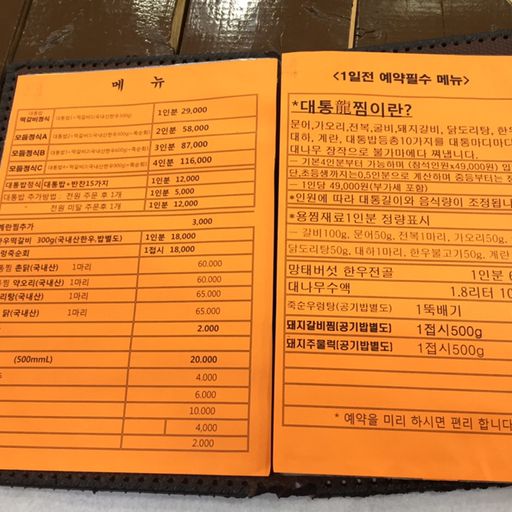 메 뉴
대통밥
떡갈비정식 1인분 29,000
모듬정식A 2인분 58,000
모듬정식B 3인분 87,000
모듬정식C 4인분 116,000
대통밥정식(대통밥+반찬15가지 1인분 12,000
대통밥 추가방법 : 전원 주문 후 1개 1인분 5,000
전원 미달 주문후 1개 12,000
계란찜추가 3,000
우떡갈비 300g(국내산한우,밥별도) 1인분 18,000
렁죽순회 1접시 18,000
찜 촌닭(국내산) 1마리 60.000
찜 약오리(국내산) 1마리 65.000
리탕(국내산) 1마리 65.000
닭(국내산) 1마리 60.000
2.000
(500mmL) 20.000
4.000
6.000
10.000
4,000
2.000
<1일전 예약필수 메뉴>
*대통龍찜이란?
문어,가오리,전복,굴비,돼지갈비, 닭도리탕, 한우
대하, 계란, 대통밥등총10가지를 대통마디마디
대나무 장작으로 불가마에다 쪄냅니다.
- 기본4인분부터 가능하며 (참석인원x49,000원)
단,초등생까지는0,5인분으로 계산하며 중등부터는 정
- 1인당 49,000원(부가세 포함)
*인원에 따라 대통길이와 음식량이 조정됩니
*용찜재료1인분 정량표시
- 갈비100g, 문어50g, 전복1마리, 가오리50g,
닭도리탕50g, 대하1마리, 한우불고기50g, 계란
망태버섯 한우전골 1인분 6
대나무수액 1.8리터 10
죽순우렁탕(공기밥별도) 1뚝배기
돼지갈비찜(공기밥별도) 1접시500g
돼지주물럭(공기밥별도) 1접시500g
* 예약을 미리 하시면 편리 합니다